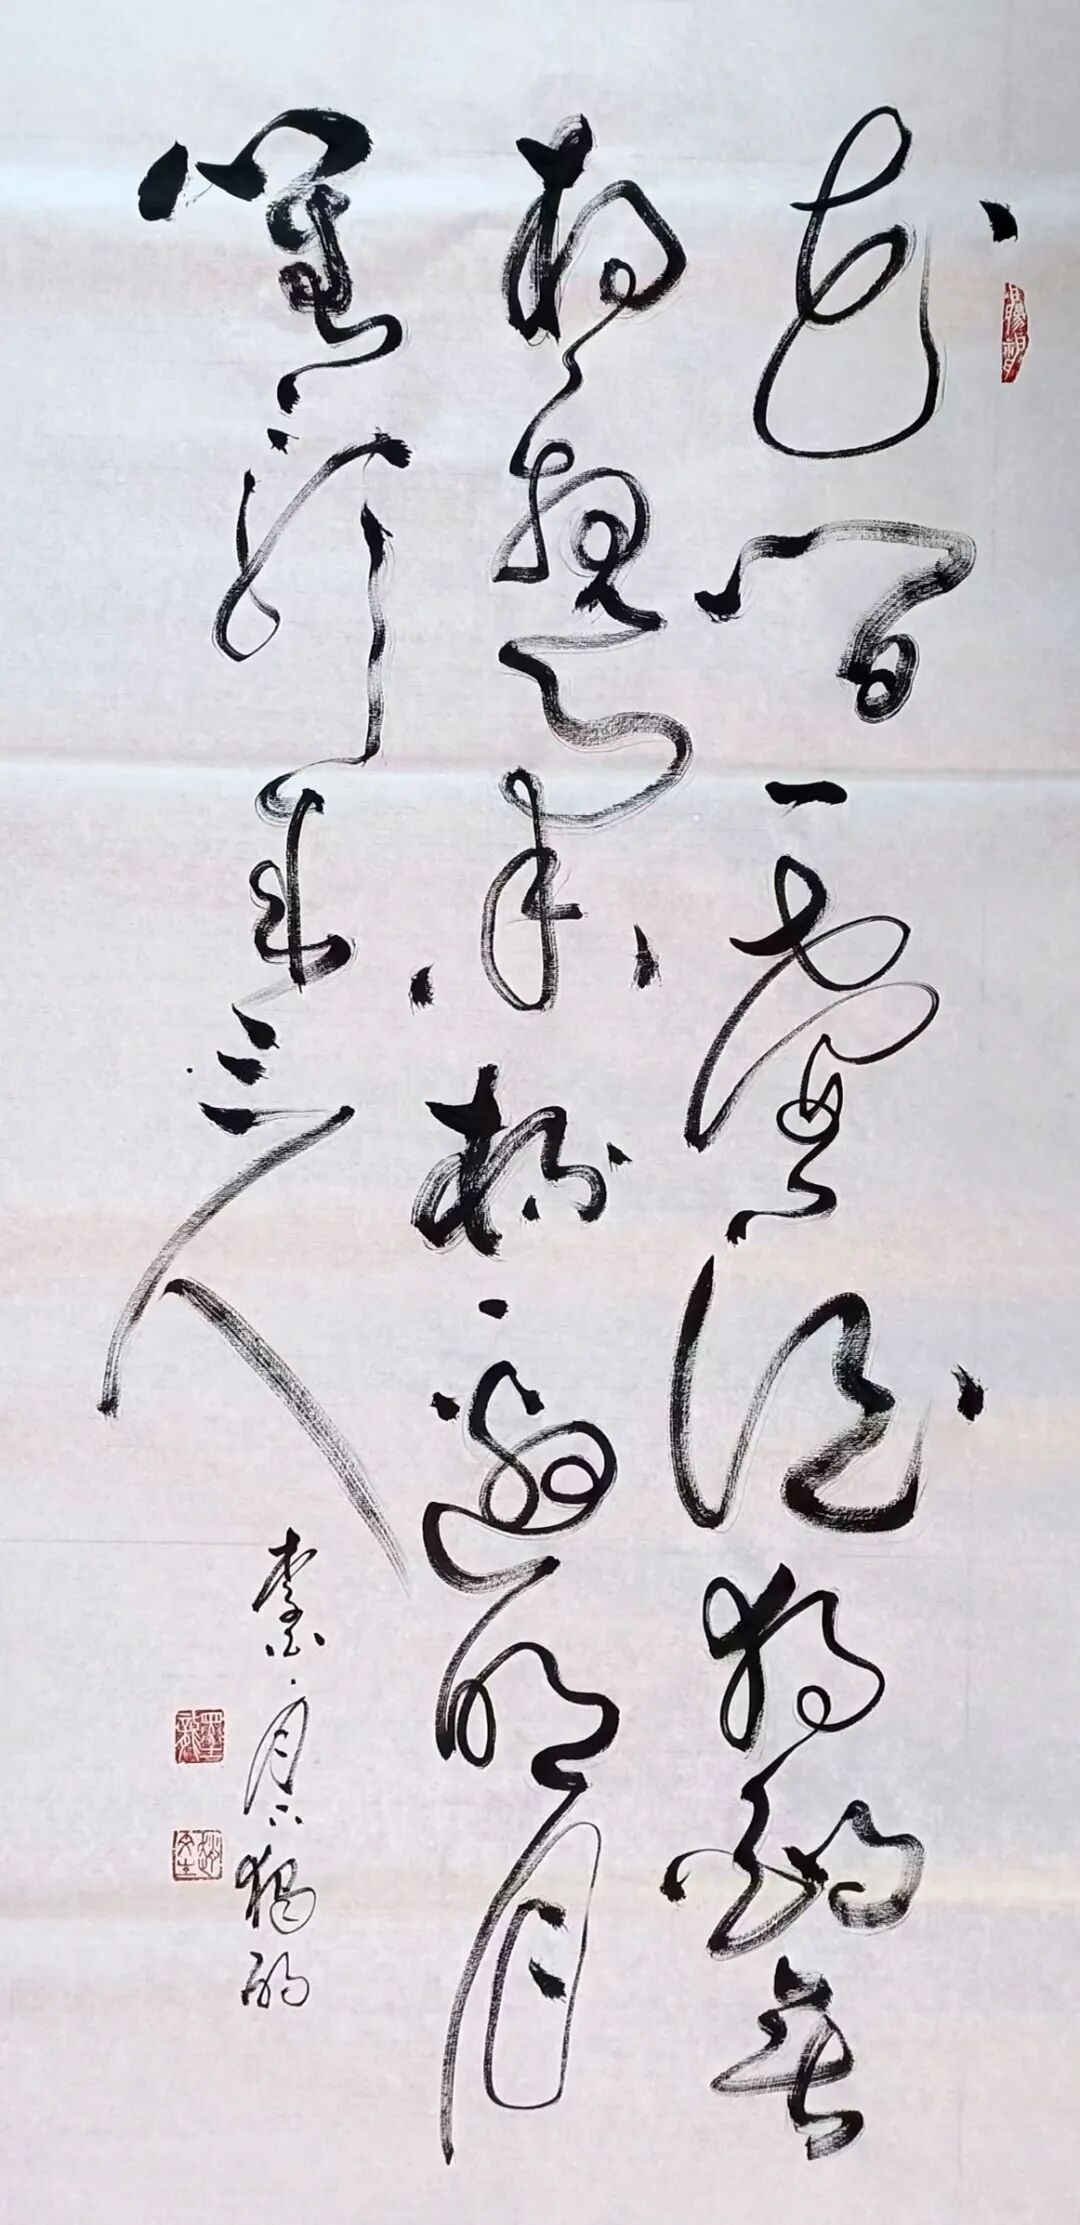 花間一壺酒獨酌無
相親舉杯邀明月
對影成三人
李白月下獨酌